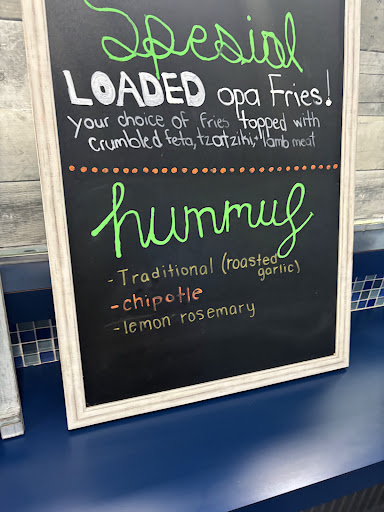 Spesial
LOADED opa Fries!
your choice of fries topped with
crumbled feta, tzatziki, + lamb meat
hummus
- Traditional (roasted
garlic)
- chipotle
- lemon rosemary